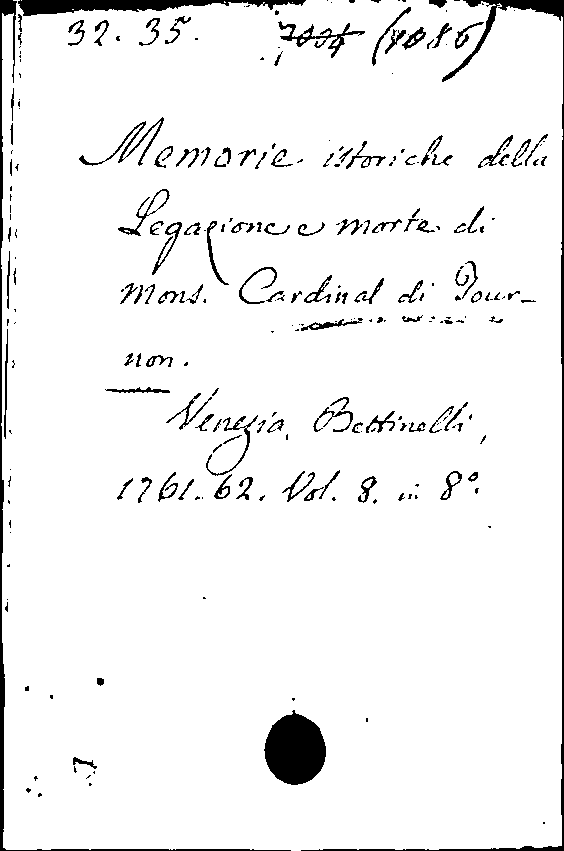 32. 35. 7004 (4086)
Memorie istoriche della
Legazione e morte di
Mons. Cardinal di Tour-
non.
Venezia, Bettinelli,
1761.-62. Vol. 8. in 8°.